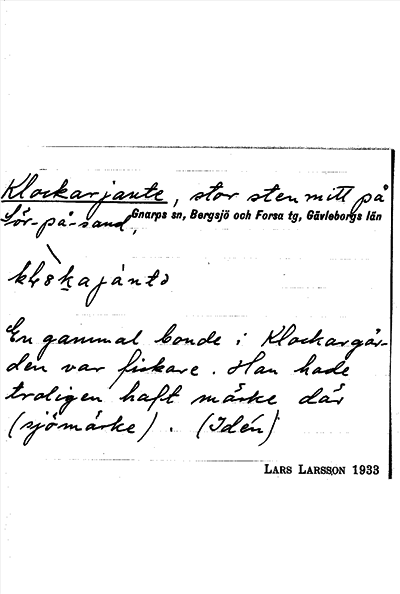 Klockarjante, stor sten mitt på
Sör-på-sand,
Gnarps sn, Bergsjö och Forsa tg, Gävleborgs län
En gammal bonde i Klockargår-
den var fiskare. Han hade
troligen haft märke där
(sjömärke). (Idén)
LARS LARSSON 1933